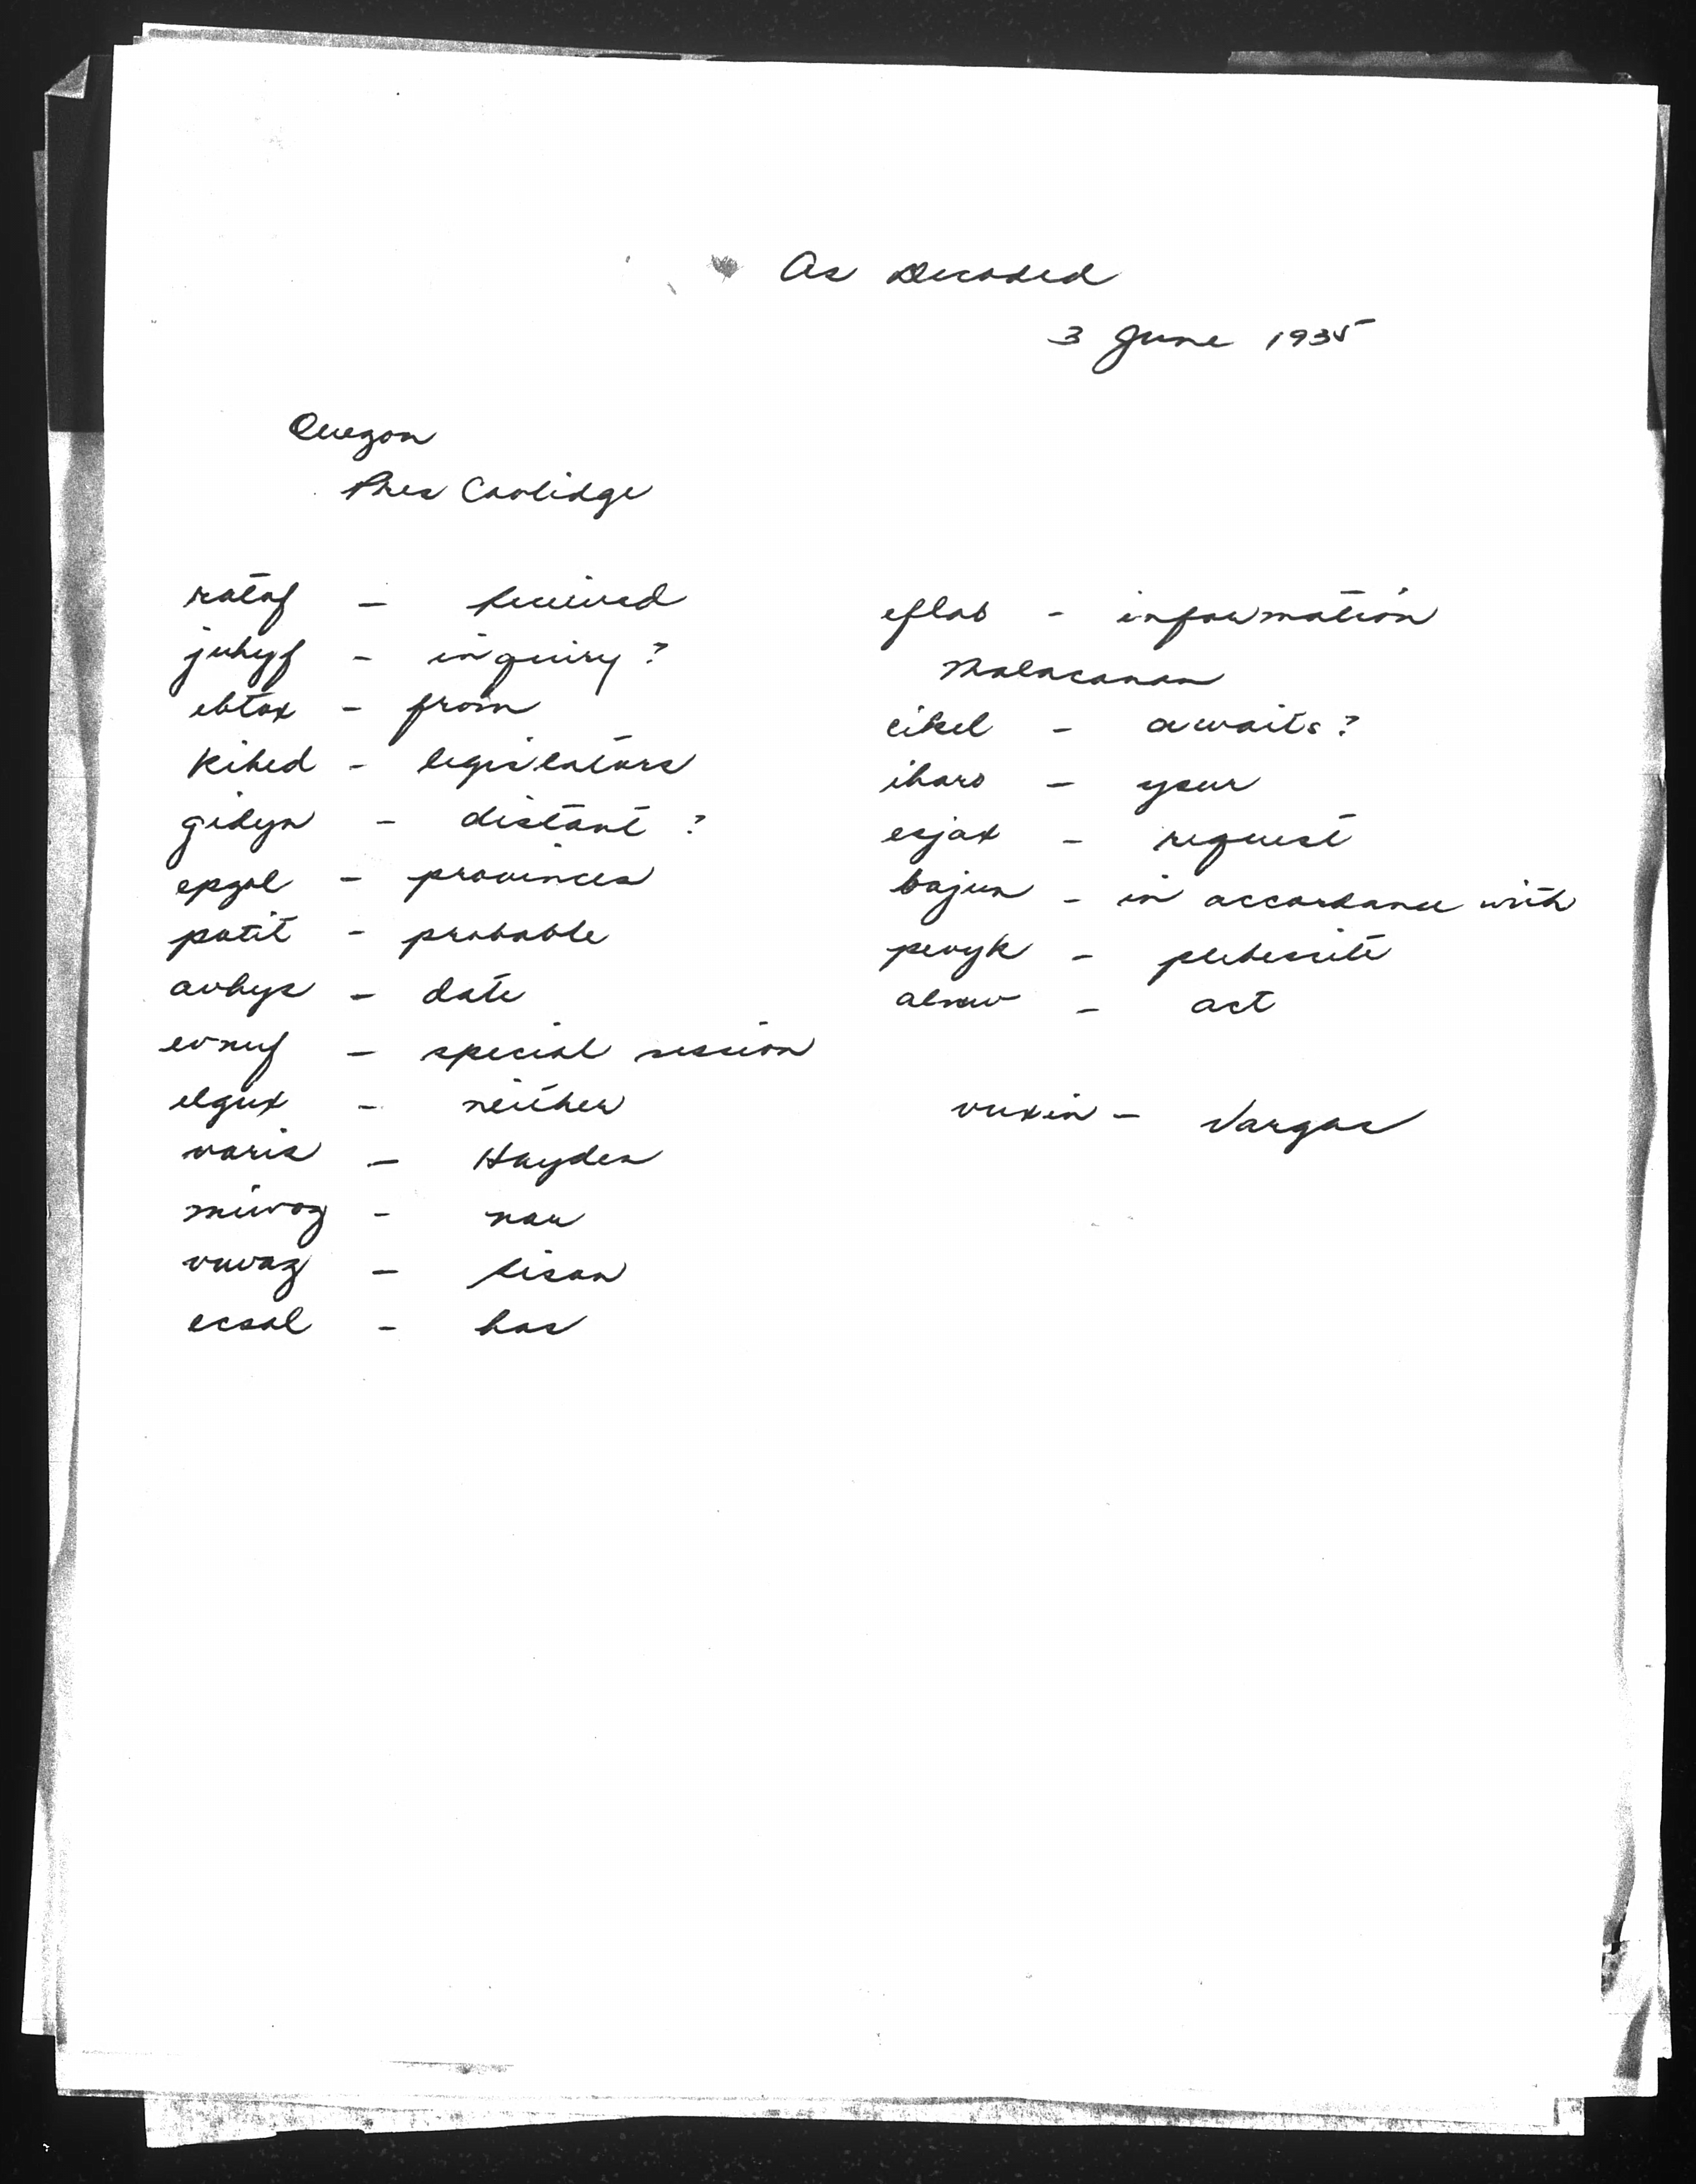 As Decoded
3 June 1935
Quezon
Pres Coolidge
rataf - received
juhyf - inquiry ?
ebtax - from
kihed - legislators
gidyn - distant ?
epzol - provinces
patit - probable
avhys - date
evnuf - special session
elgux - neither
varis - Hayden
miwoz - nor
vuvaz - Sison
ecsal - has
eflab - information
Malacanan
cikel - awaits ?
iharo - your
esjax - request
bajun - in accordance with
pevyk - plebescite
alnaw - act
vuxin - Vargas